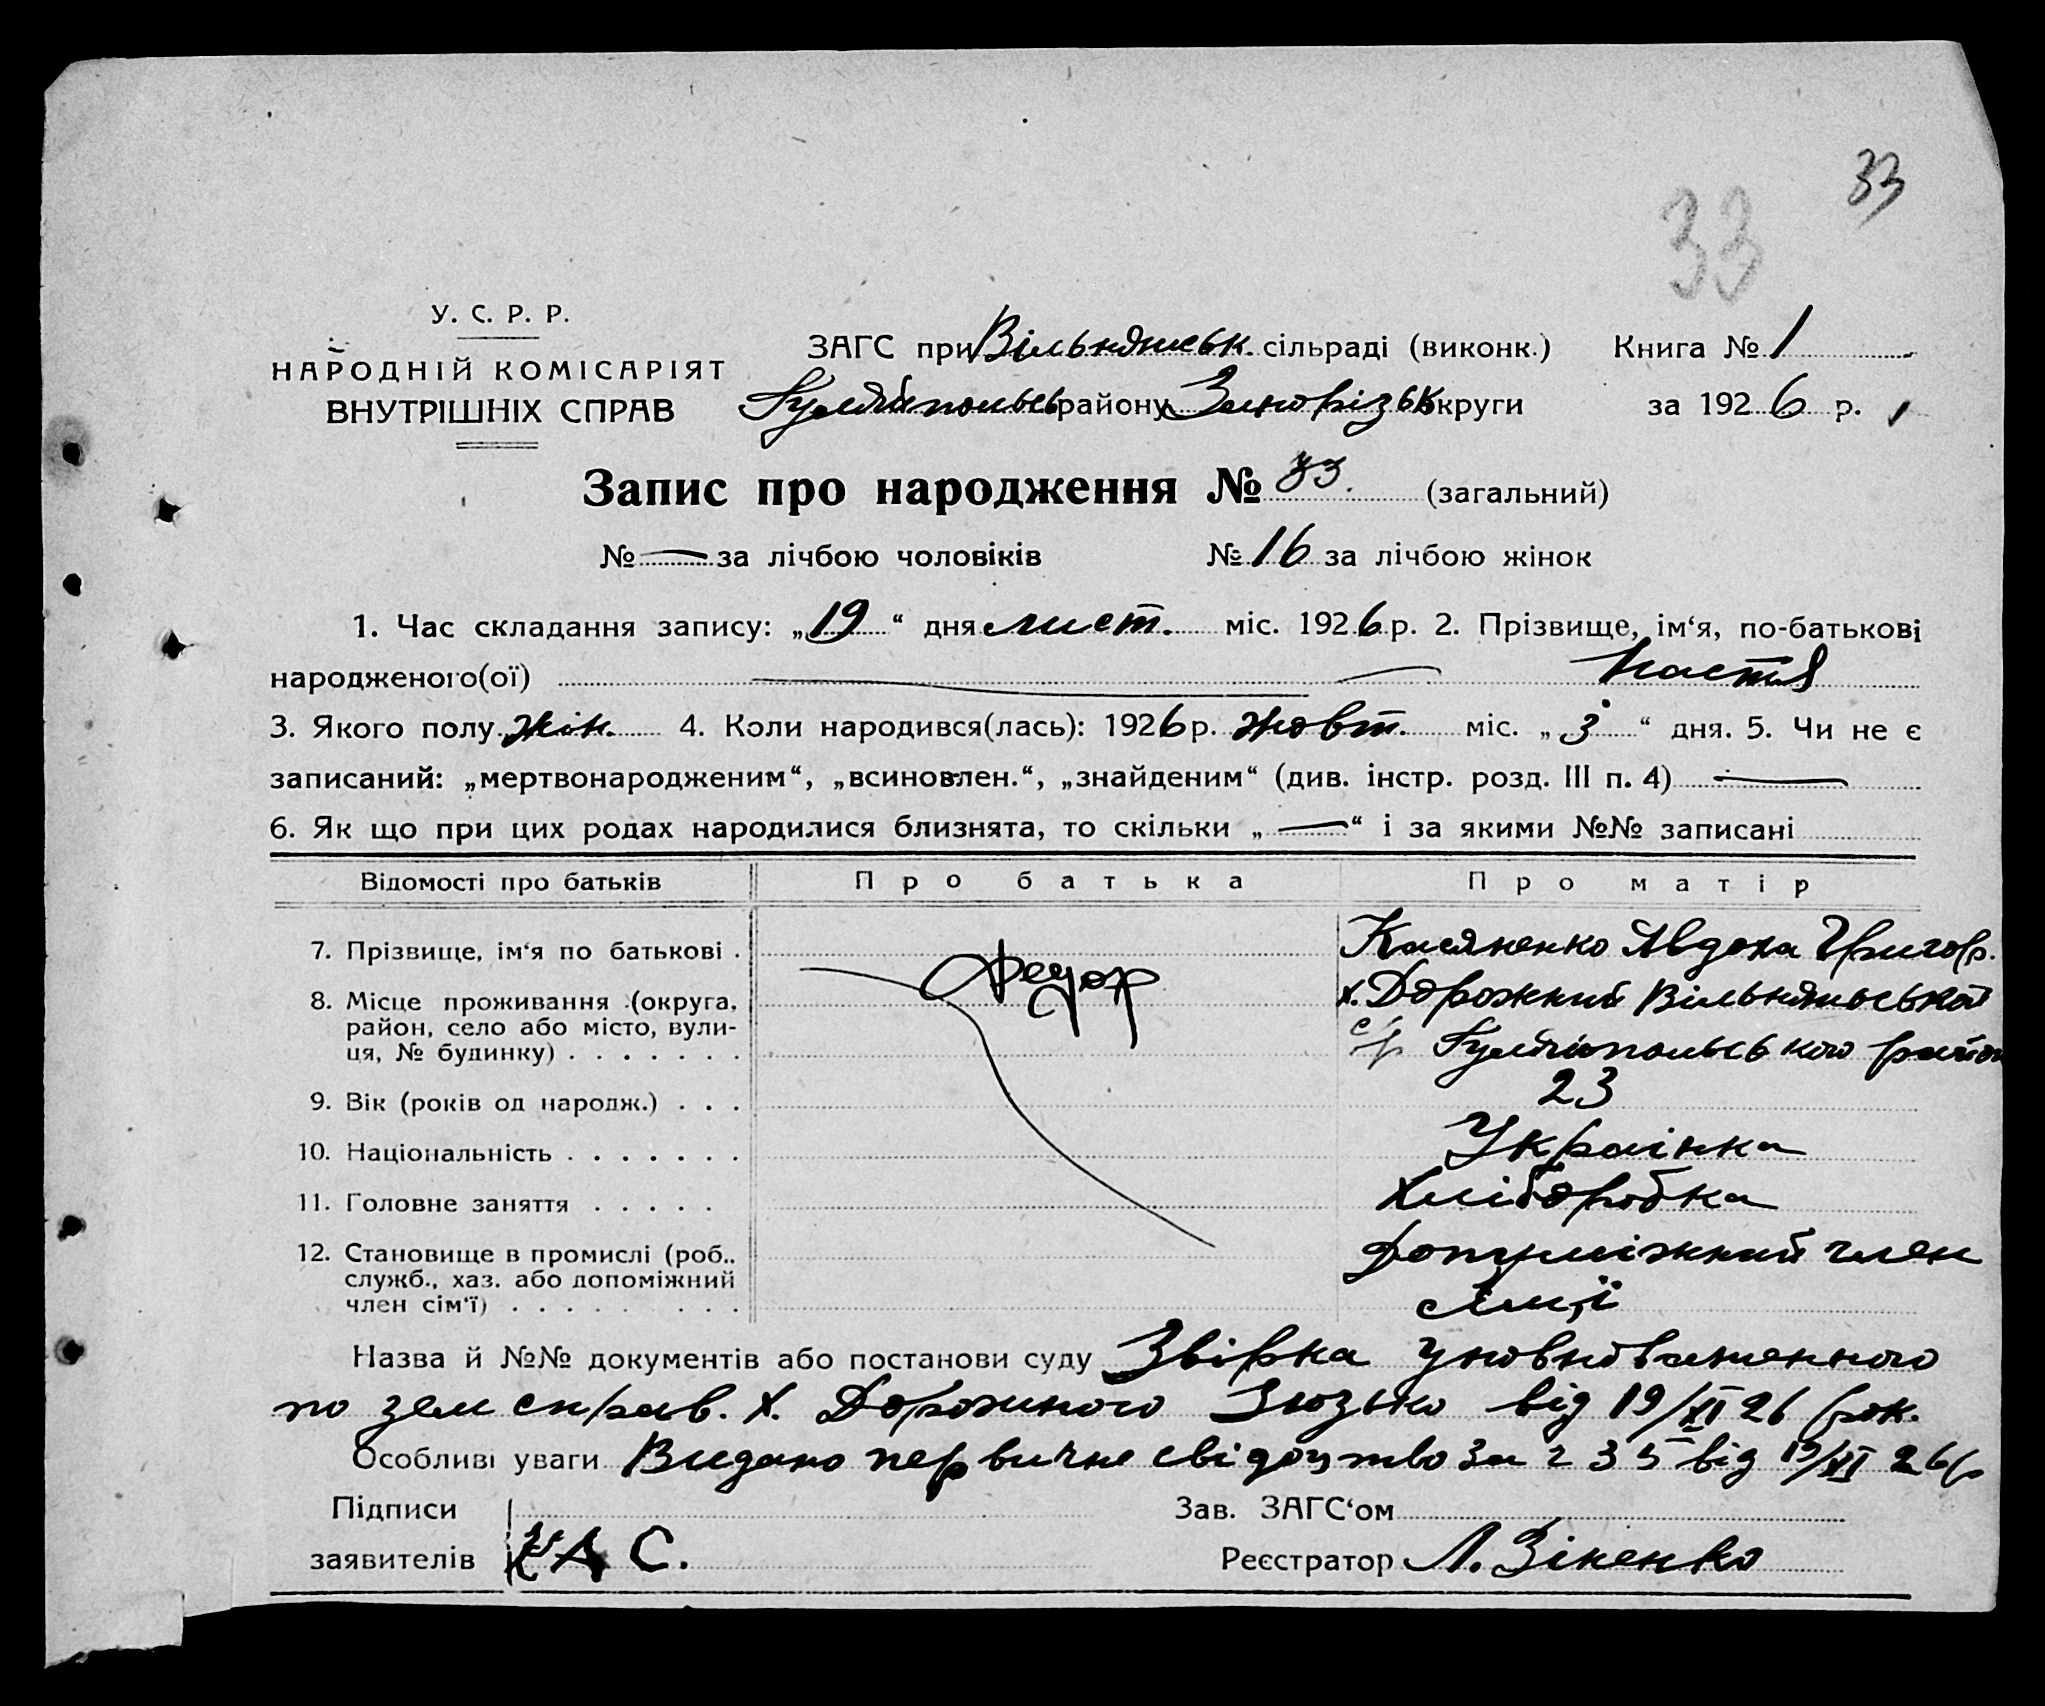 33
33
У. С. Р. Р.
НАРОДНІЙ КОМІСАРІЯТ
ВНУТРІШНІХ СПРАВ
ЗАГС при Вільнянськ. сільраді (виконк.) Книга № 1
Гуляйпольсь району Запорізьк округи за 1926 р.
Запис про народження № 33. (загальний)
№ — за лічбою чоловіків № 16 за лічбою жінок
1. Час складання запису: „19“ дня лист. міс. 1926 р. 2. Прізвище, ім‘я, по-батькові
народженого(ої) — Настя
3. Якого полу жін. 4. Коли народився(лась): 1926 р. жовт. міс. „3“ дня. 5. Чи не є
записаний: „мертвонародженим“, „всиновлен.“, „знайденим“ (див. інстр. розд. III п. 4) —
6. Як що при цих родах народилися близнята, то скільки „—“ і за якими №№ записані
Відомості про батьків Про батька Про матір
7. Прізвище, ім‘я по батькові . Федор Касяненко Явдоха Григор.
8. Місце проживання (округа, район, село або місто, вули- ця, № будинку) . . . . . . . х. Дорожний Вільнянської
с/р Гуляйпольського район
9. Вік (років од народж.) . . . 23
10. Національність . . . . . . . Українка
11. Головне заняття . . . . . Хліборобка
12. Становище в промислі (роб., служб., хаз. або допоміжний член сім‘ї) . . . . . . . . Допуміжний член
сімї
Назва й №№ документів або постанови суду Звірка уповноваженного
по зем справ. х. Дорожного Зюзько від 19/XI 26 рок.
Особливі уваги Видано первичне свідоцтво за ч 35 від 19/XI 26 р
Підписи Зав. ЗАГС‘ом
заявителів КАС. Реєстратор Л. Зіненко